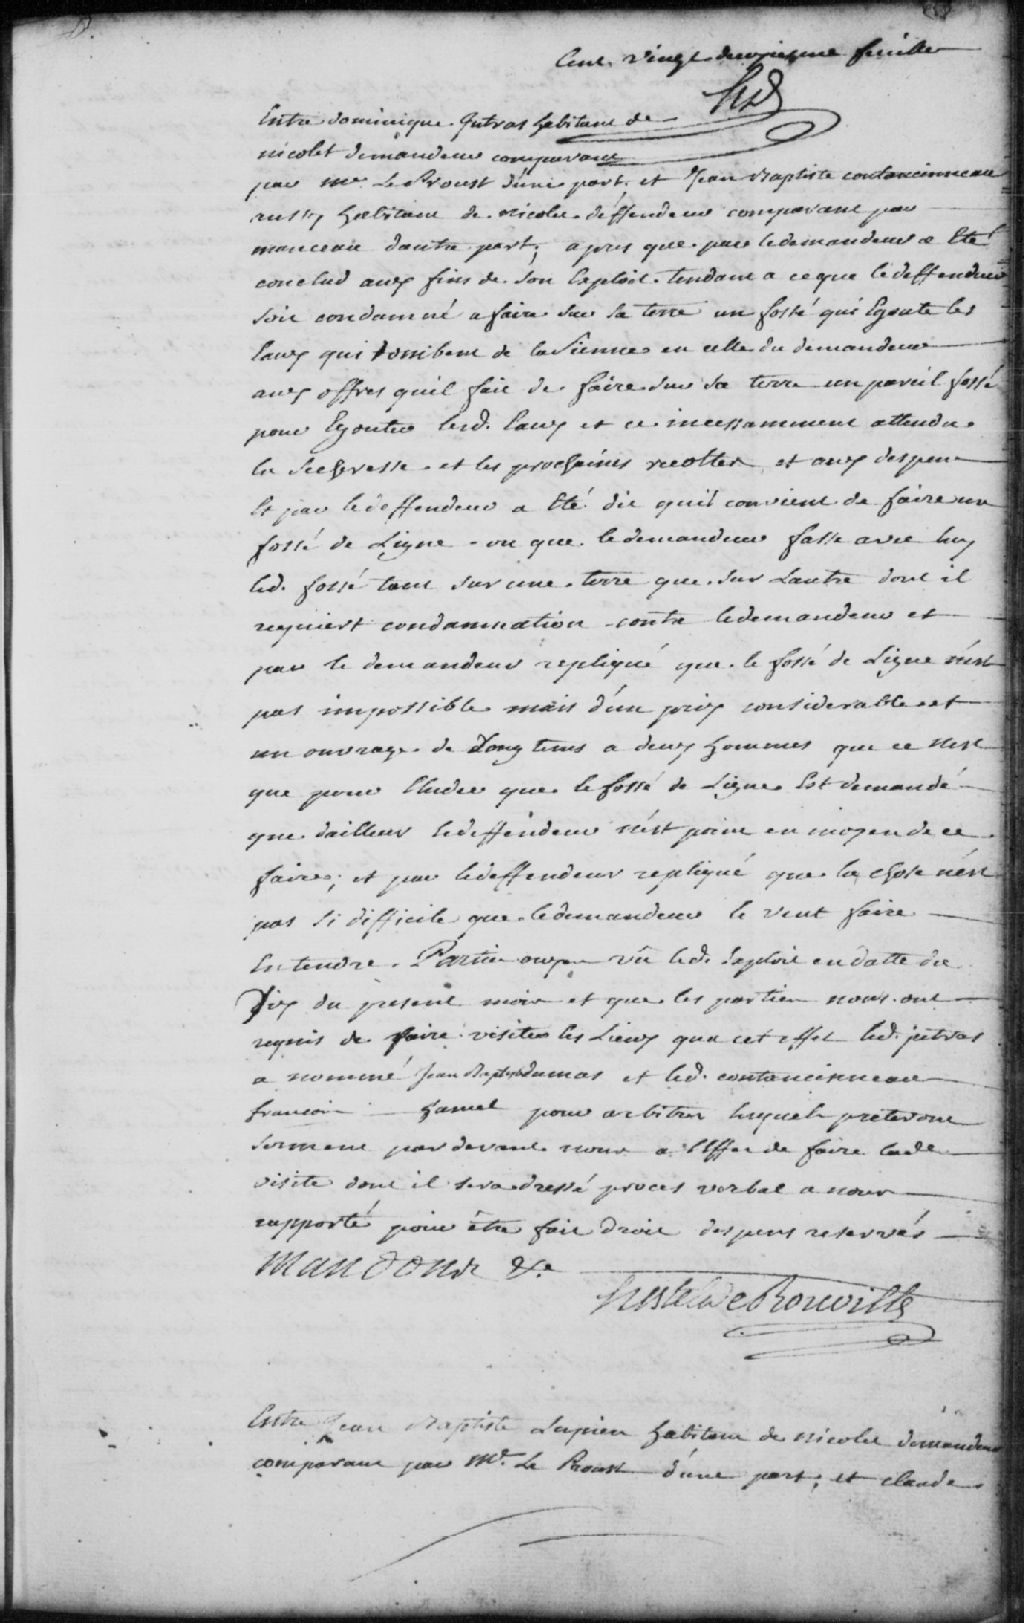 Cent vingt deuxiesme feuille
HsD
Entre dominique Jutras habitant de
nicolet demandeur comparant
par Me. Le Proust d'une part, et Jean Baptiste contancinneau
aussy habitant de nicolet deffendeur comparant par
manceau dautre part; apres que par le demandeur a Eté
conclud aux fins de son Exploit tendant a ceque le deffendeur
soit condamné a faire sur sa terre un fossé qui Egoute les
Eaux qui tombent de la Sienne en celle du demandeur
aux offres quil fait de faire sur sa terre un pareil fossé
pour Egouter lesd. Eaux et ce incessamment attendu
la Secheresse et les prochaines recoltes et aux despens
Et par le deffendeur a Eté dit quil convient de faire un
fossé de Ligne ou que le demandeur fasse avec luy
led. fossé tant sur une terre que sur Lautre dont il
requiert condamnation contre le demandeur et
par le demandeur repliqué que le fossé de Ligne n'est
pas impossible mais d'un prix considerable et
un ouvrage de Longtems a deux hommes que ce n'est
que pour Eluder que le fossé de Ligne Est demandé
que dailleurs le deffendeur n'est point en moyen de ce
faire; et par le deffendeur repliqué que la chose n'est
pas Si difficile que le demandeur le veut faire
Entendre. Parties ouyes vû led. Exploit en datte du
Dix du present mois et que les parties nous ont
requis de faire visiter les Lieux qua cet effet led. jutras
a nommé Jean Baptiste dumas et led. contancinneau
francois hamel pour arbitres lesquels preteront
serment pardevant nous a l'Effet de faire lade.
visite dont il sera dressé procés verbal a nous
rapporté pour être fait droit despens reservés
Mandons &c.
Hertel De Rouville
Entre Jean Baptiste Lupien habitant de nicolet demandeur
comparant par Me. Le Proust d'une part; et claude